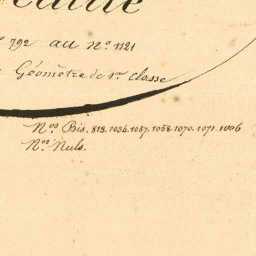 792 au N.º 1121
Géomètre de 1.re Classe
N.os Bis. 818. 1036. 1057. 1058. 1070. 1071. 1096
N.os Nuls.